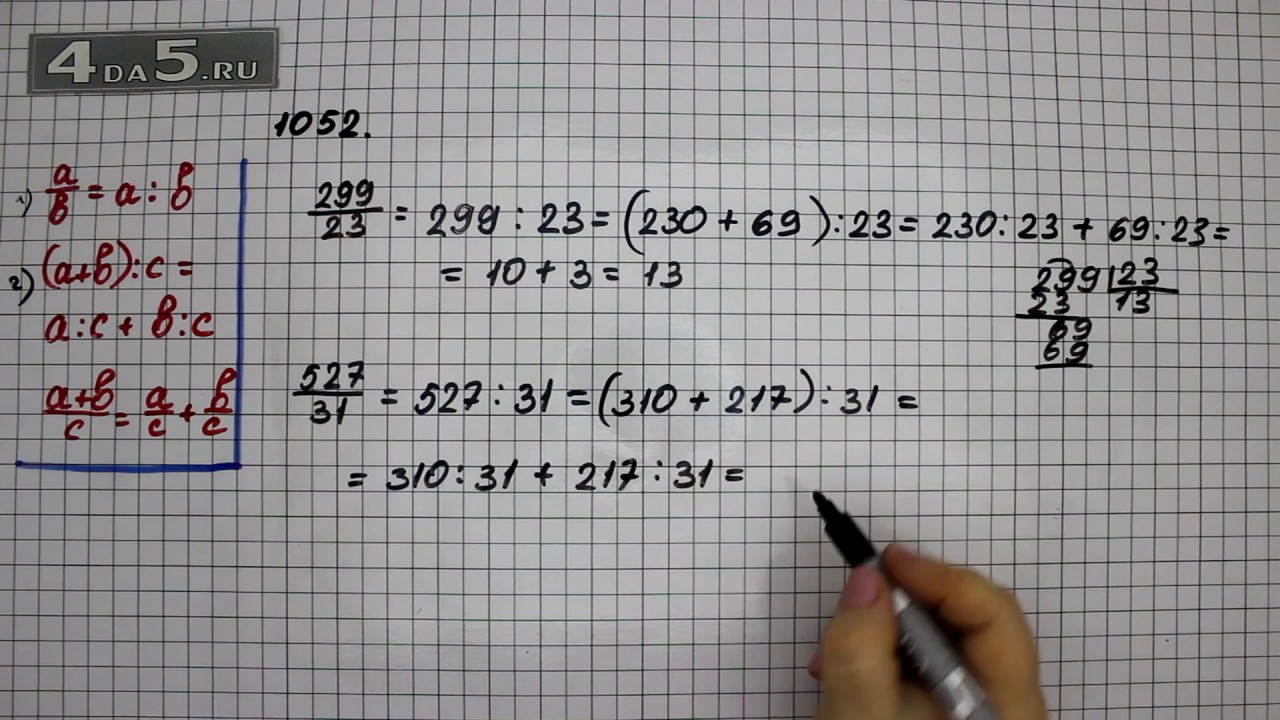 4DA5.RU
1052.
1) a/b = a : b
2) (a+b):c =
a:c + b:c
(a+b)/c = a/c + b/c
299/23 = 299 : 23 = (230 + 69) : 23 = 230 : 23 + 69 : 23 =
= 10 + 3 = 13
299 | 23
23 13
69
69
527/31 = 527 : 31 = (310 + 217) : 31 =
= 310 : 31 + 217 : 31 =